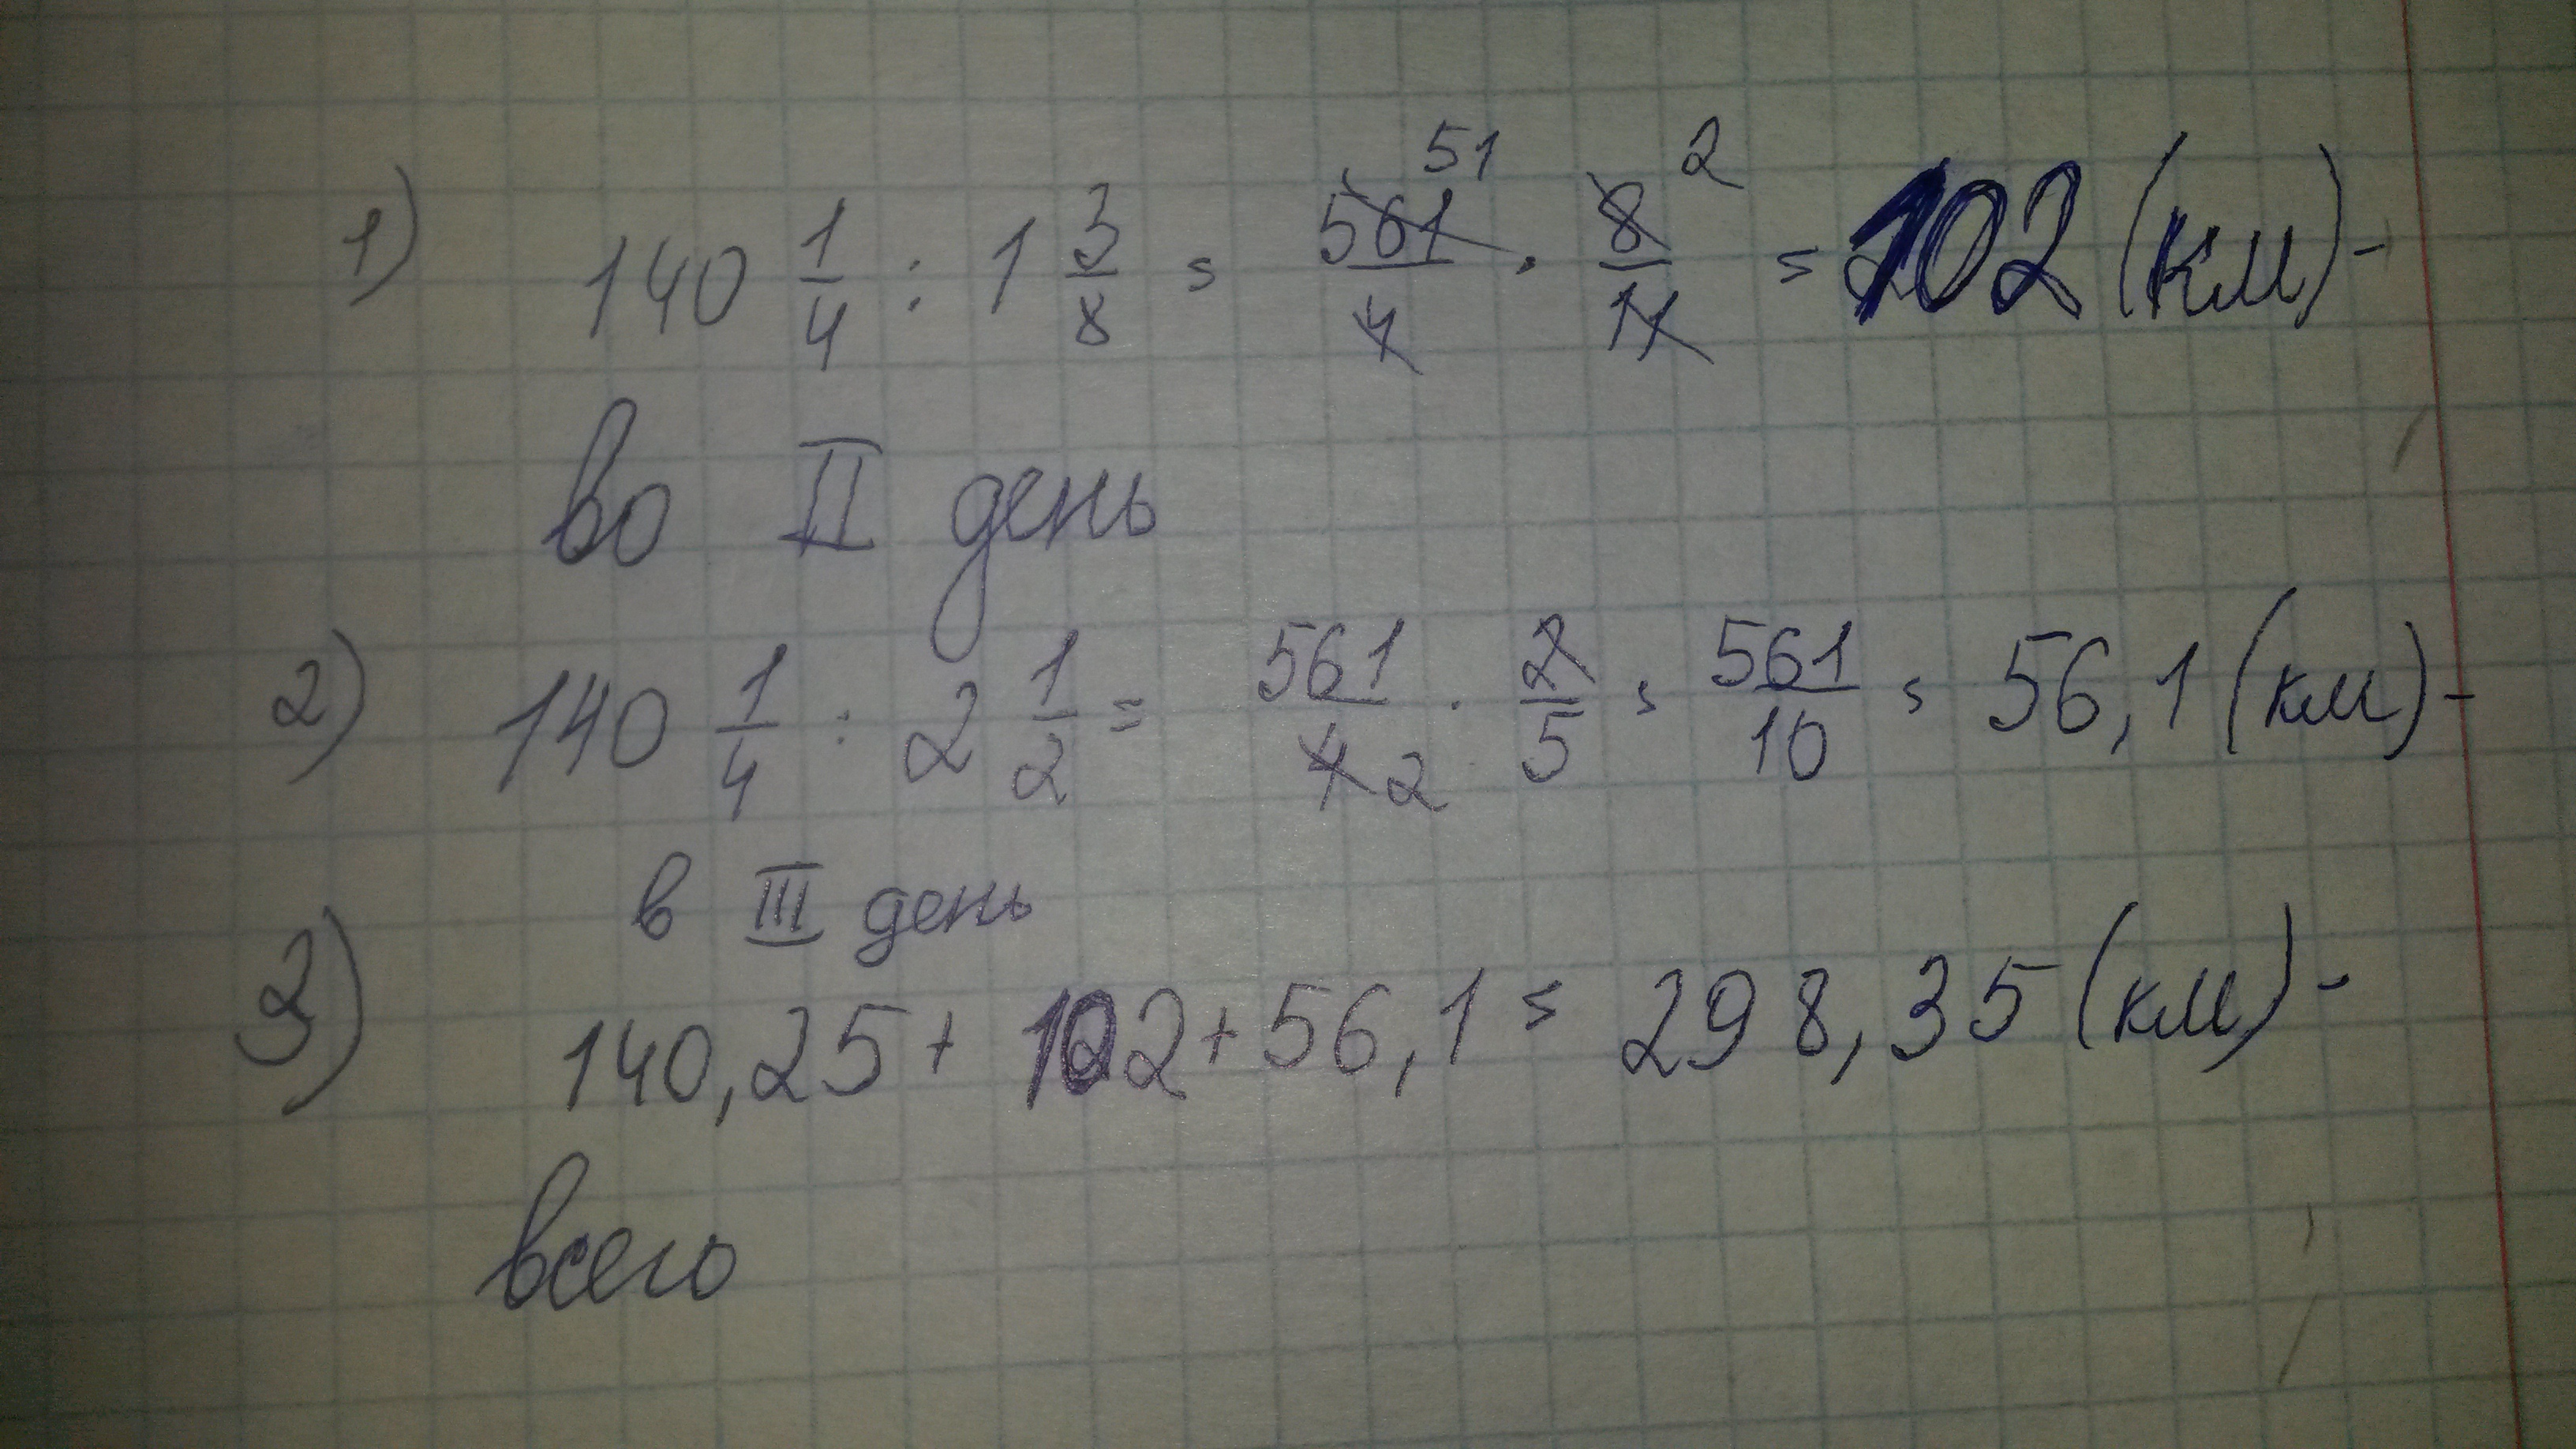 1) 140 1/4 : 1 3/8 = 561/4 51 · 8/11 2 = 102 (км) -
во II день
2) 140 1/4 : 2 1/2 = 561/4 2 · 2/5 = 561/10 = 56,1 (км) -
в III день
3) 140,25 + 102 + 56,1 = 298,35 (км) -
всего